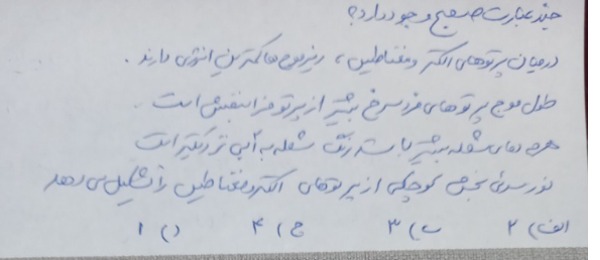 چند عبارت صحیح وجود دارد؟
درمیان پرتوهای الکترومغناطیس، ریزموج ها کمترین انرژی دارند.
طول موج پرتوهای فروسرخ بیشتر از پرتو فرابنفش است.
هرچه دمای شعله بیشتر باشد رنگ شعله به آبی نزدیکتر است
نور مرئی بخش کوچکی از پرتوهای الکترومغناطیس را تشکیل می دهد
الف) ۲ ب) ۳ ج) ۴ د) ۱